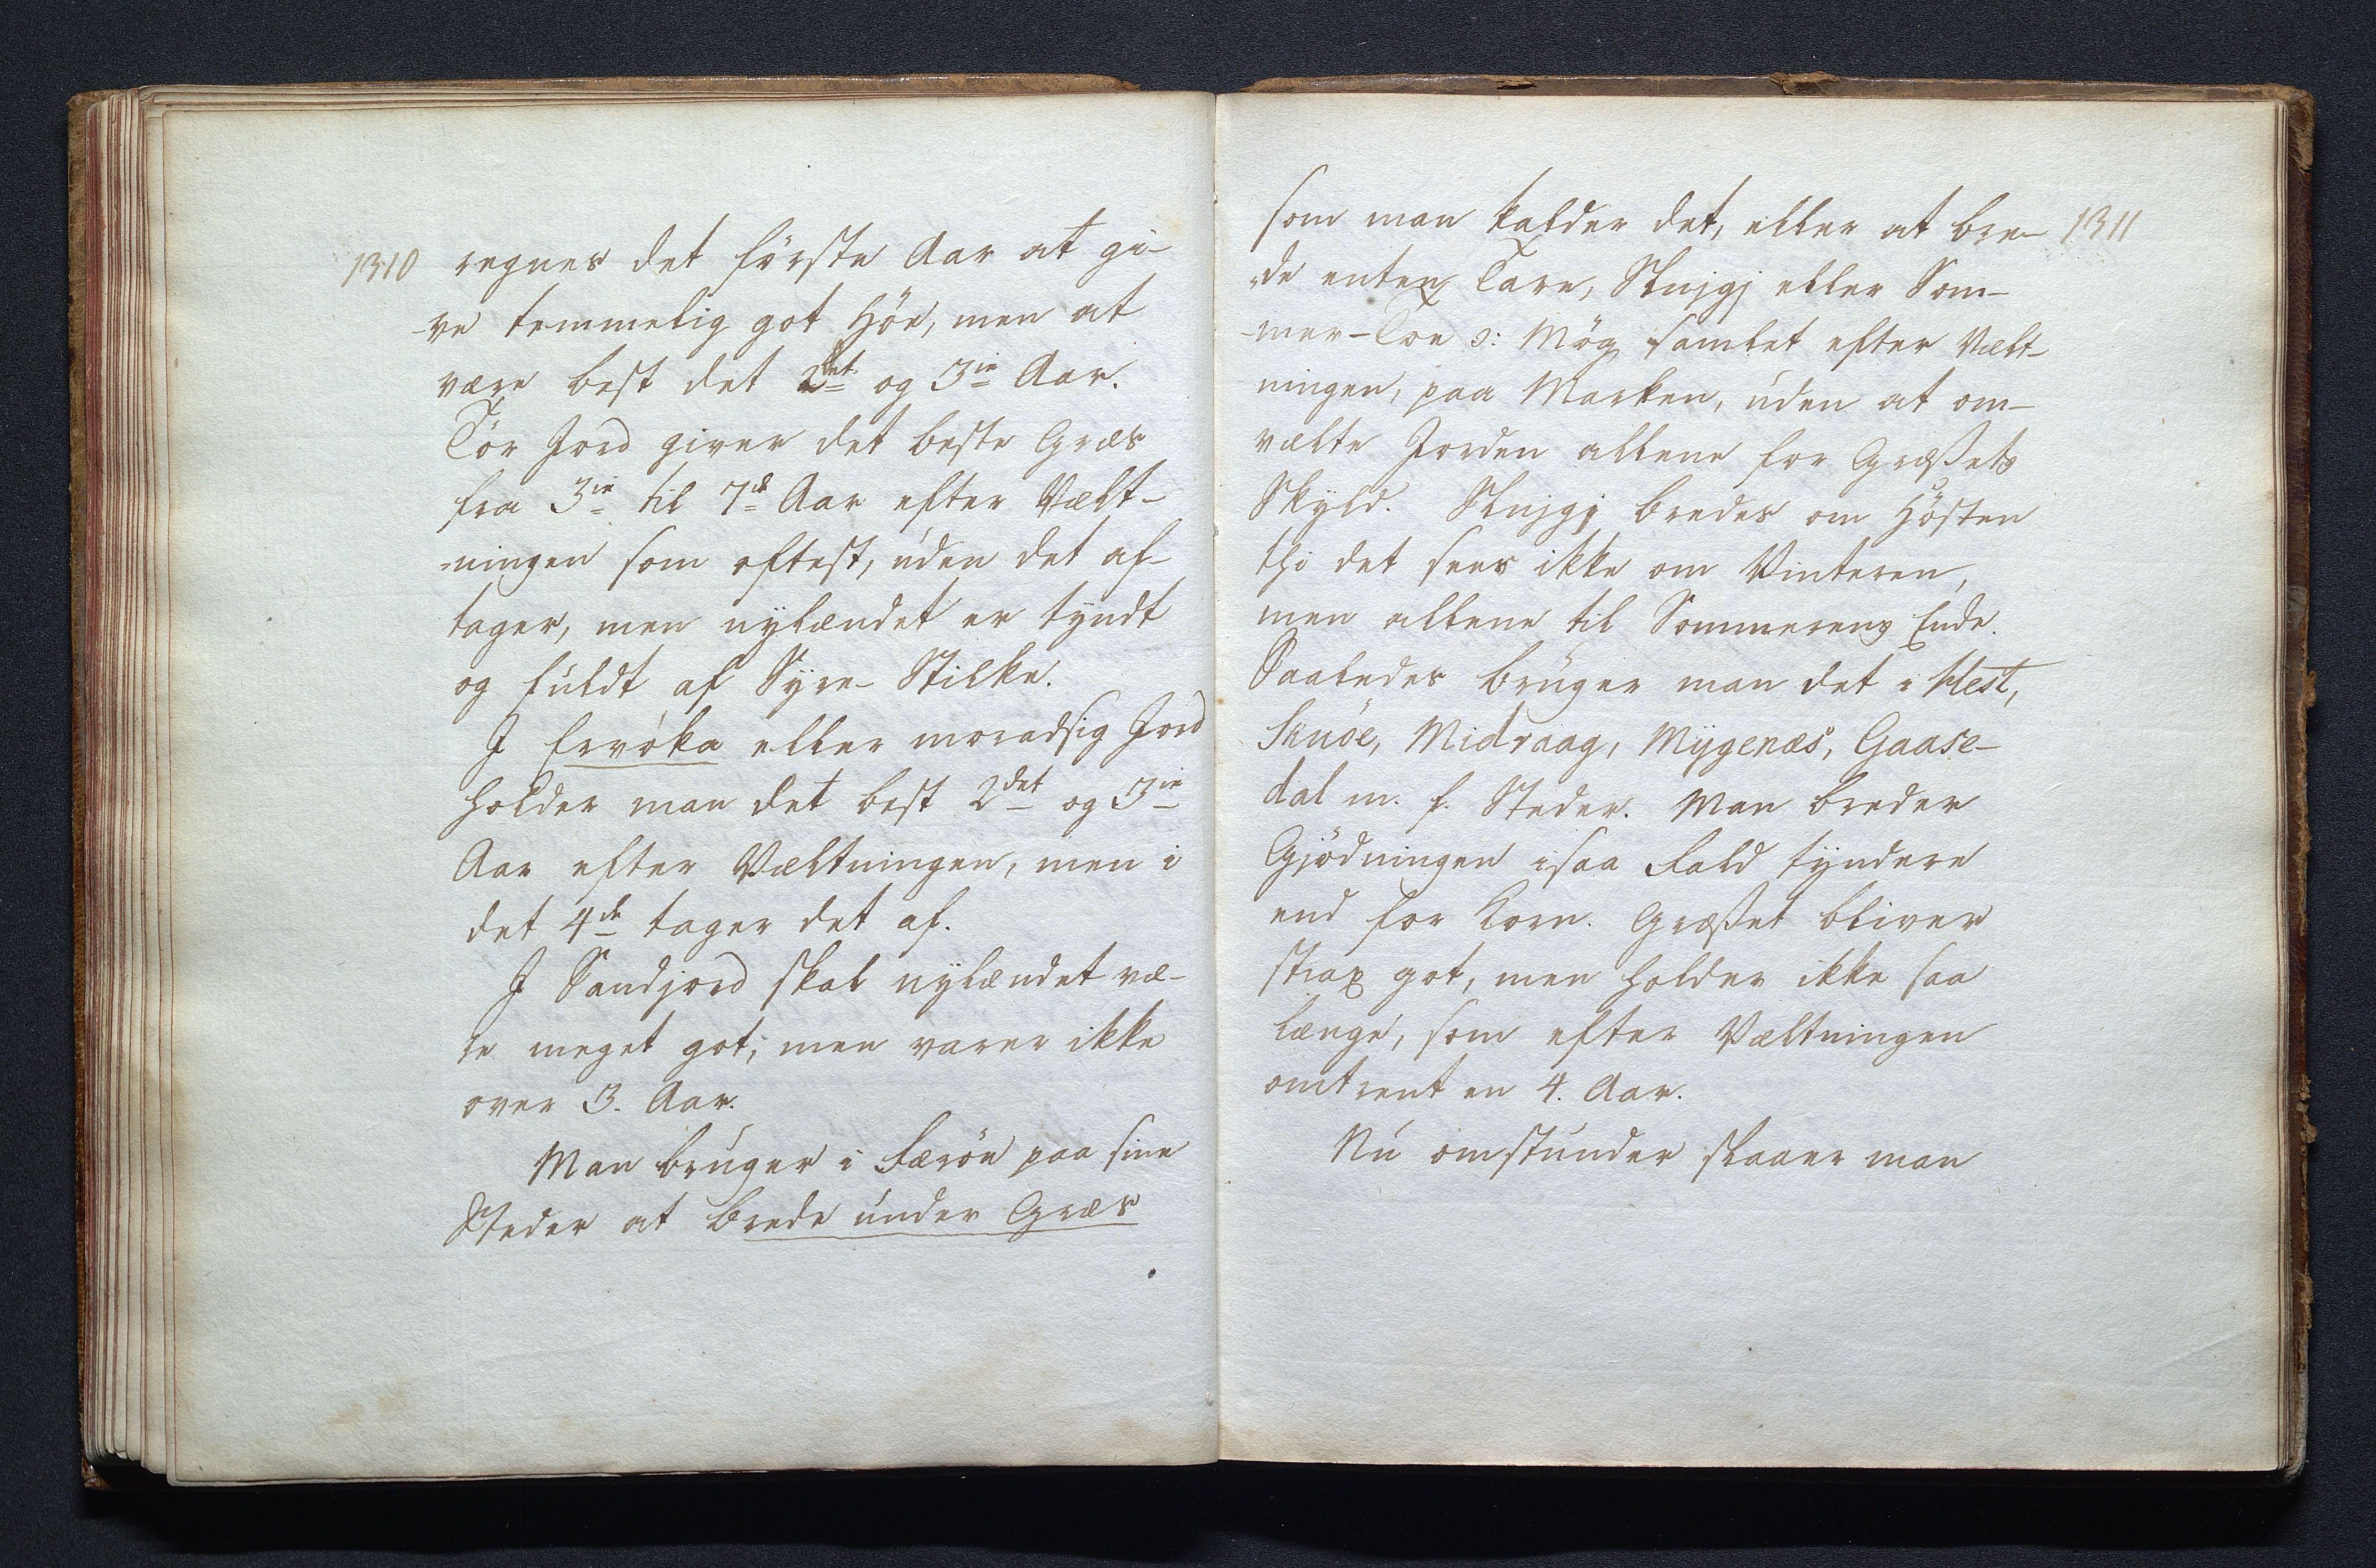 1310 regnes det förste Aar at gi-
-ve temmelig got Höe, men at
være best det 2det og 3ie Aar.
Tör Jord giver det beste Græs
fra 3ie til 7de Aar efter Vælt-
-ningen som oftest, uden det af-
tager, men nylændet er tyndt
og fuldt af Syre-Stilke.
I Ervóka eller moradsig Jord
holder man det best 2det og 3ie
Aar efter Væltningen, men i
det 4de tager det af.
I Sandjord skal nylændet væ-
re meget got, men varer ikke
over 3. Aar.
Man bruger i Færöe paa sine
Steder at brede under Græs
som man kalder det, eller at bre- 1311
-de enten Tare, Slujgj eller Som-
-mer-Toe ɔ: Mög samlet efter Vælt-
ningen, paa Marken, uden at om-
vælte Jorden allene for Græßets
Skyld. Slujgj bredes om Hösten
thi det sees ikke om Vinteren,
men allene til Sommerens Ende.
Saaledes bruger man det i Hest,
Skuöe, Midvaag, Mygenæs, Gaase-
dal m. f. Steder. Man breder
Gjödningen isaa Fald tyndere
end for Korn. Græßet bliver
strax got, men holder ikke saa
længe, som efter Væltningen
omtrent en 4. Aar.
Nu omstunder slaaer man